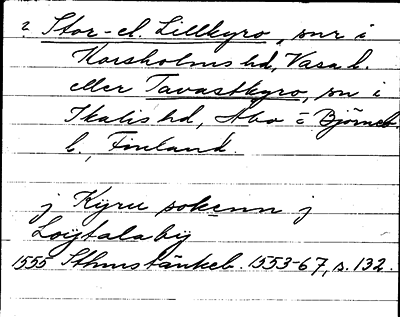 ? Stor- el. Lillkyro, snr i
Korsholms hd, Vasa l.
eller Tavastkyro, sn i
Ikalis hd, Åbo o Björneb.
l., Finland.
j Kyru sokenn j
Loijtala bij
1555 Sthmstänkeb. 1553-67, s. 132.